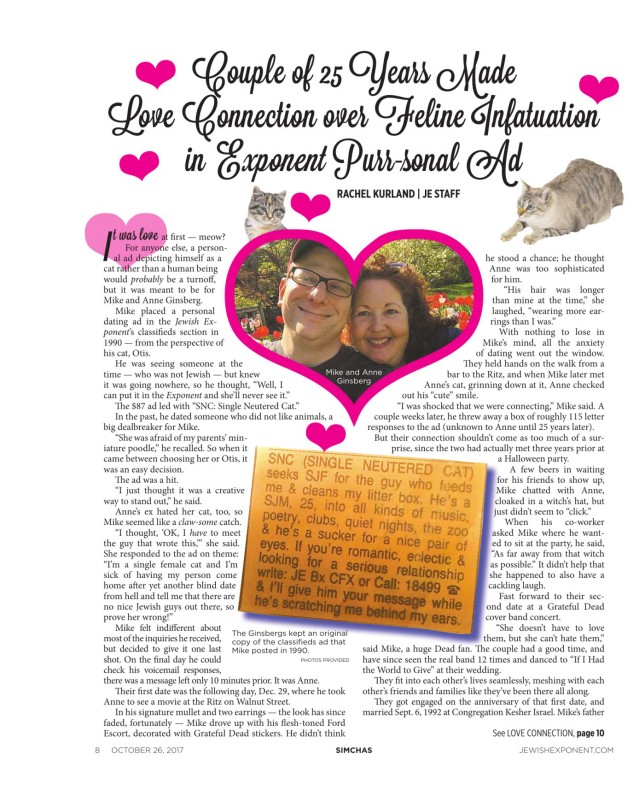 Couple of 25 Years Made
Love Connection over Feline Infatuation
in Exponent Purr-sonal Ad
RACHEL KURLAND | JE STAFF
It was love at first — meow?
For anyone else, a person-
al ad depicting himself as a
cat rather than a human being
would probably be a turnoff,
but it was meant to be for
Mike and Anne Ginsberg.
Mike placed a personal
dating ad in the Jewish Ex-
ponent's classifieds section in
1990 — from the perspective of
his cat, Otis.
He was seeing someone at the
time — who was not Jewish — but knew
it was going nowhere, so he thought, "Well, I
can put it in the Exponent and she'll never see it."
The $87 ad led with "SNC: Single Neutered Cat."
In the past, he dated someone who did not like animals, a
big dealbreaker for Mike.
"She was afraid of my parents' min-
iature poodle," he recalled. So when it
came between choosing her or Otis, it
was an easy decision.
The ad was a hit.
"I just thought it was a creative
way to stand out," he said.
Anne's ex hated her cat, too, so
Mike seemed like a claw-some catch.
"I thought, 'OK, I have to meet
the guy that wrote this,'" she said.
She responded to the ad on theme:
"I'm a single female cat and I'm
sick of having my person come
home after yet another blind date
from hell and tell me that there are
no nice Jewish guys out there, so
prove her wrong!"
Mike felt indifferent about
most of the inquiries he received,
but decided to give it one last
shot. On the final day he could
check his voicemail responses,
there was a message left only 10 minutes prior. It was Anne.
Their first date was the following day, Dec. 29, where he took
Anne to see a movie at the Ritz on Walnut Street.
In his signature mullet and two earrings — the look has since
faded, fortunately — Mike drove up with his flesh-toned Ford
Escort, decorated with Grateful Dead stickers. He didn't think
Mike and Anne
Ginsberg
SNC (SINGLE NEUTERED CAT)
seeks SJF for the guy who feeds
me & cleans my litter box. He's a
SJM, 25, into all kinds of music,
poetry, clubs, quiet nights, the zoo
& he's a sucker for a nice pair of
eyes. If you're romantic, eclectic &
looking for a serious relationship
write: JE Bx CFX or Call: 18499 ☎
& I'll give him your message while
he's scratching me behind my ears.
The Ginsbergs kept an original
copy of the classifieds ad that
Mike posted in 1990.
PHOTOS PROVIDED
he stood a chance; he thought
Anne was too sophisticated
for him.
"His hair was longer
than mine at the time," she
laughed, "wearing more ear-
rings than I was."
With nothing to lose in
Mike's mind, all the anxiety
of dating went out the window.
They held hands on the walk from a
bar to the Ritz, and when Mike later met
Anne's cat, grinning down at it, Anne checked
out his "cute" smile.
"I was shocked that we were connecting," Mike said. A
couple weeks later, he threw away a box of roughly 115 letter
responses to the ad (unknown to Anne until 25 years later).
But their connection shouldn't come as too much of a sur-
prise, since the two had actually met three years prior at
a Halloween party.
A few beers in waiting
for his friends to show up,
Mike chatted with Anne,
cloaked in a witch's hat, but
just didn't seem to "click."
When his co-worker
asked Mike where he want-
ed to sit at the party, he said,
"As far away from that witch
as possible." It didn't help that
she happened to also have a
cackling laugh.
Fast forward to their sec-
ond date at a Grateful Dead
cover band concert.
"She doesn't have to love
them, but she can't hate them,"
said Mike, a huge Dead fan. The couple had a good time, and
have since seen the real band 12 times and danced to "If I Had
the World to Give" at their wedding.
They fit into each other's lives seamlessly, meshing with each
other's friends and families like they've been there all along.
They got engaged on the anniversary of that first date, and
married Sept. 6, 1992 at Congregation Kesher Israel. Mike's father
See LOVE CONNECTION, page 10
8 OCTOBER 26, 2017
SIMCHAS
JEWISHEXPONENT.COM